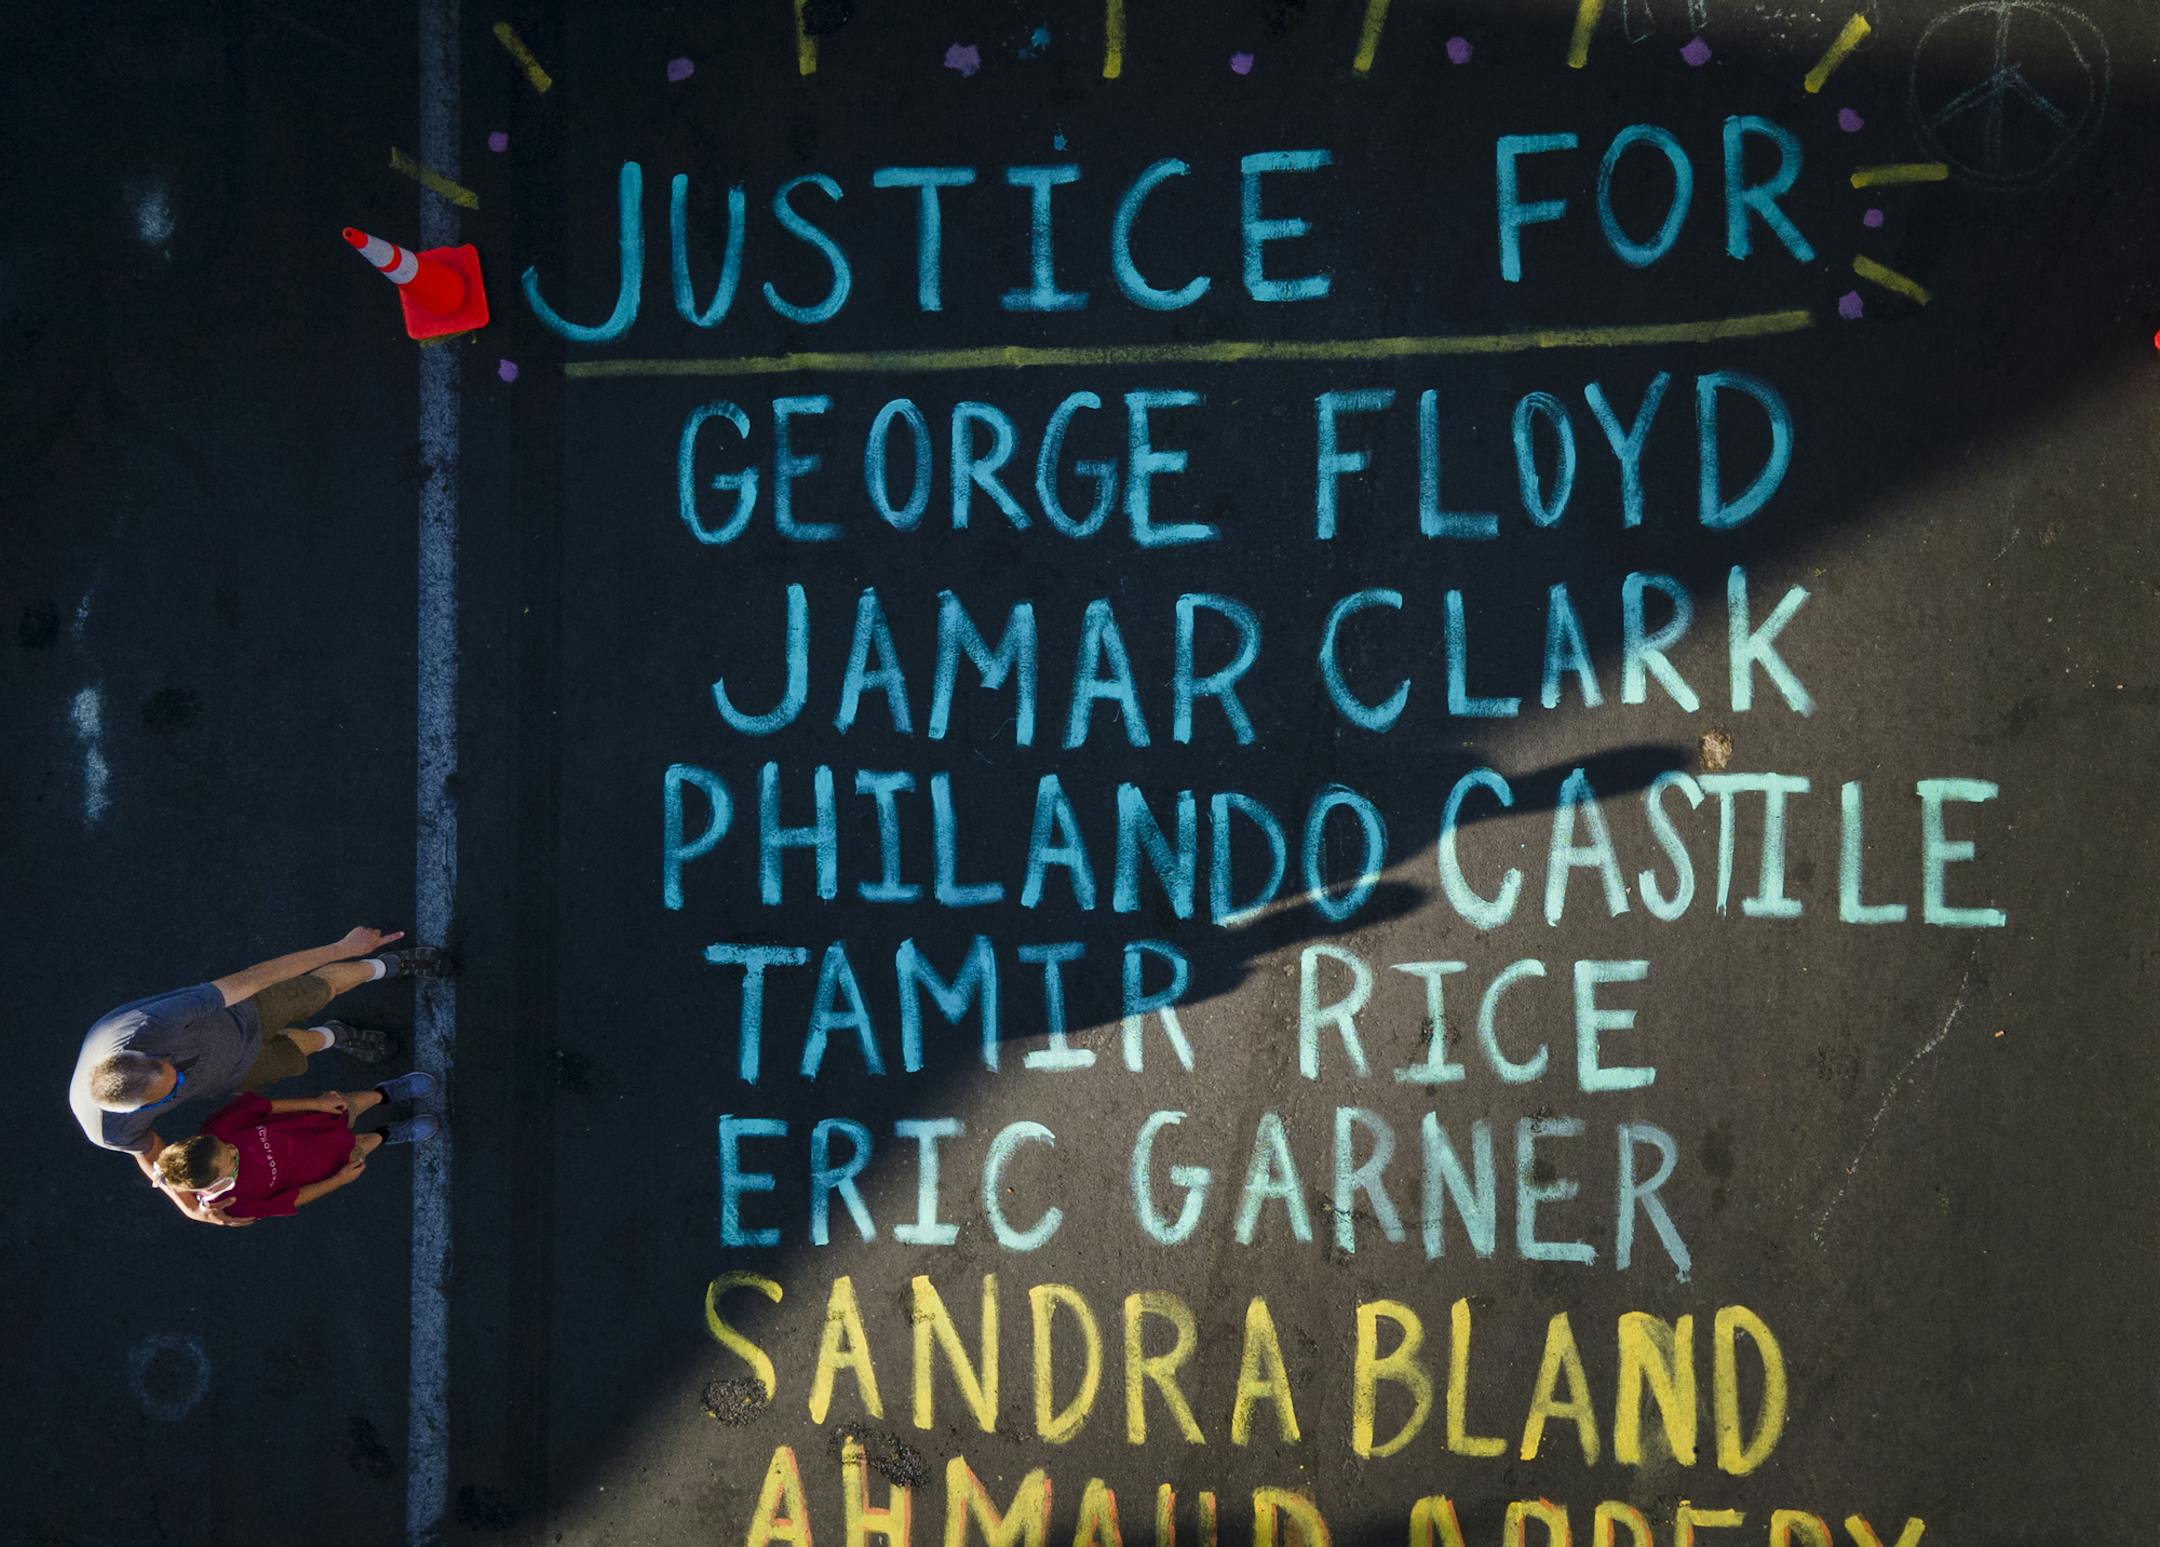 JUSTICE FOR
GEORGE FLOYD
JAMAR CLARK
PHILANDO CASTILE
TAMIR RICE
ERIC GARNER
SANDRA BLAND
AHMAUD ARBERY